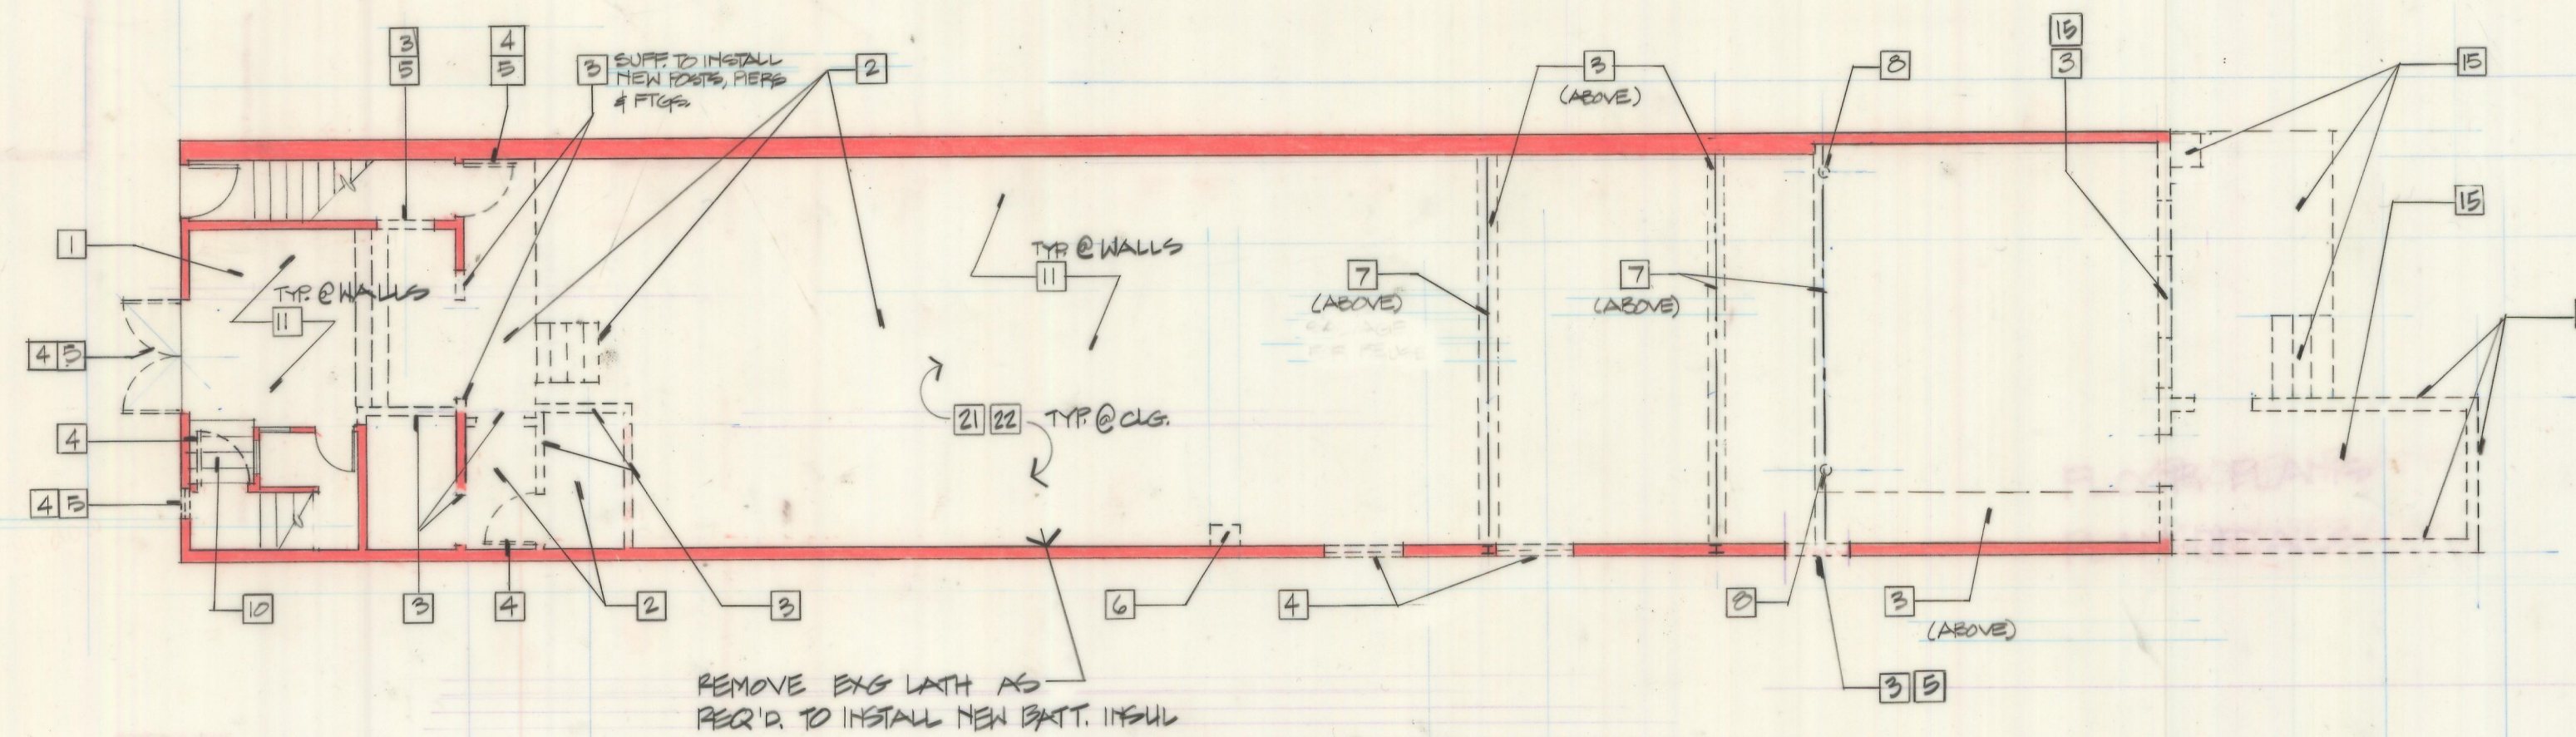 3
5
4
5
3
SUFF. TO INSTALL
NEW POSTS, PIERS
& FTGS.
2
3
(ABOVE)
8
15
3
15
15
1
TYP. @ WALLS
11
TYP. @ WALLS
11
7
(ABOVE)
7
(ABOVE)
4 5
21 22 TYP. @ CLG.
4
4 5
FLOOR BEAMS
10
3
4
2
3
6
4
8
3
(ABOVE)
3 5
REMOVE EXG LATH AS
REQ'D. TO INSTALL NEW BATT. INSUL